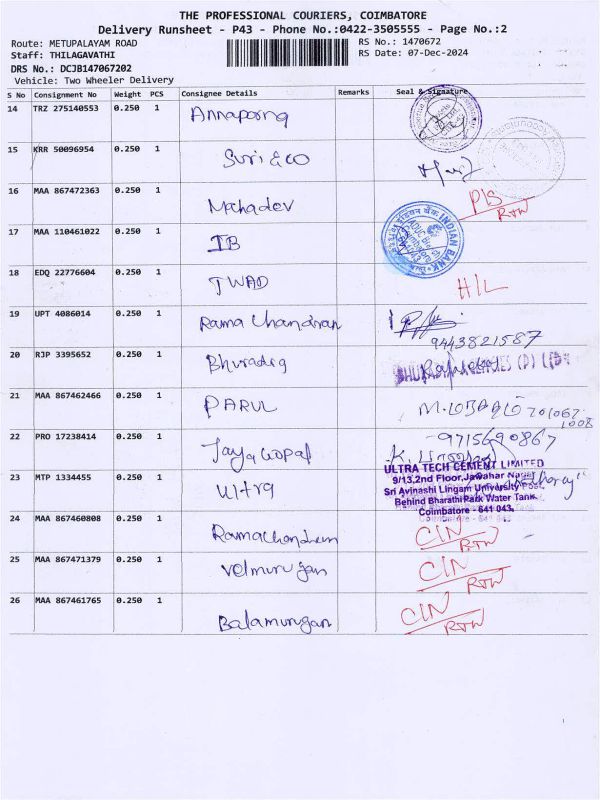 THE PROFESSIONAL COURIERS, COIMBATORE
Delivery Runsheet - P43 - Phone No.:0422-3505555 - Page No.:2
Route: METUPALAYAM ROAD RS No.: 1470672
Staff: THILAGAVATHI RS Date: 07-Dec-2024
DRS No.: DCJB147067202
Vehicle: Two Wheeler Delivery
S No Consignment No Weight PCS Consignee Details Remarks Seal & Signature
14 TRZ 275140553 0.250 1 Annapoorna
15 KRR 50096954 0.250 1 Suri & co
16 MAA 867472363 0.250 1 Mahadev P/S RTW
17 MAA 110461022 0.250 1 IB INDIAN BANK
18 EDQ 22776604 0.250 1 TWAD H/L
19 UPT 4086014 0.250 1 Rama Chandran 9443821587
20 RJP 3395652 0.250 1 Bhuradeg (P) LTD
21 MAA 867462466 0.250 1 PARUL
22 PRO 17238414 0.250 1 Jaya Gopal 9715690867
23 MTP 1334455 0.250 1 Ultra
ULTRA TECH CEMENT LIMITED
9/13,2nd Floor,Jawahar Nagar
Sri Avinashi Lingam University Post,
Behind Bharathi Park Water Tank,
Coimbatore - 641 043.
24 MAA 867460808 0.250 1 Ramachandren C/N RTW
25 MAA 867471379 0.250 1 velmurugan C/N RTW
26 MAA 867461765 0.250 1 Balamurugan C/N RTW